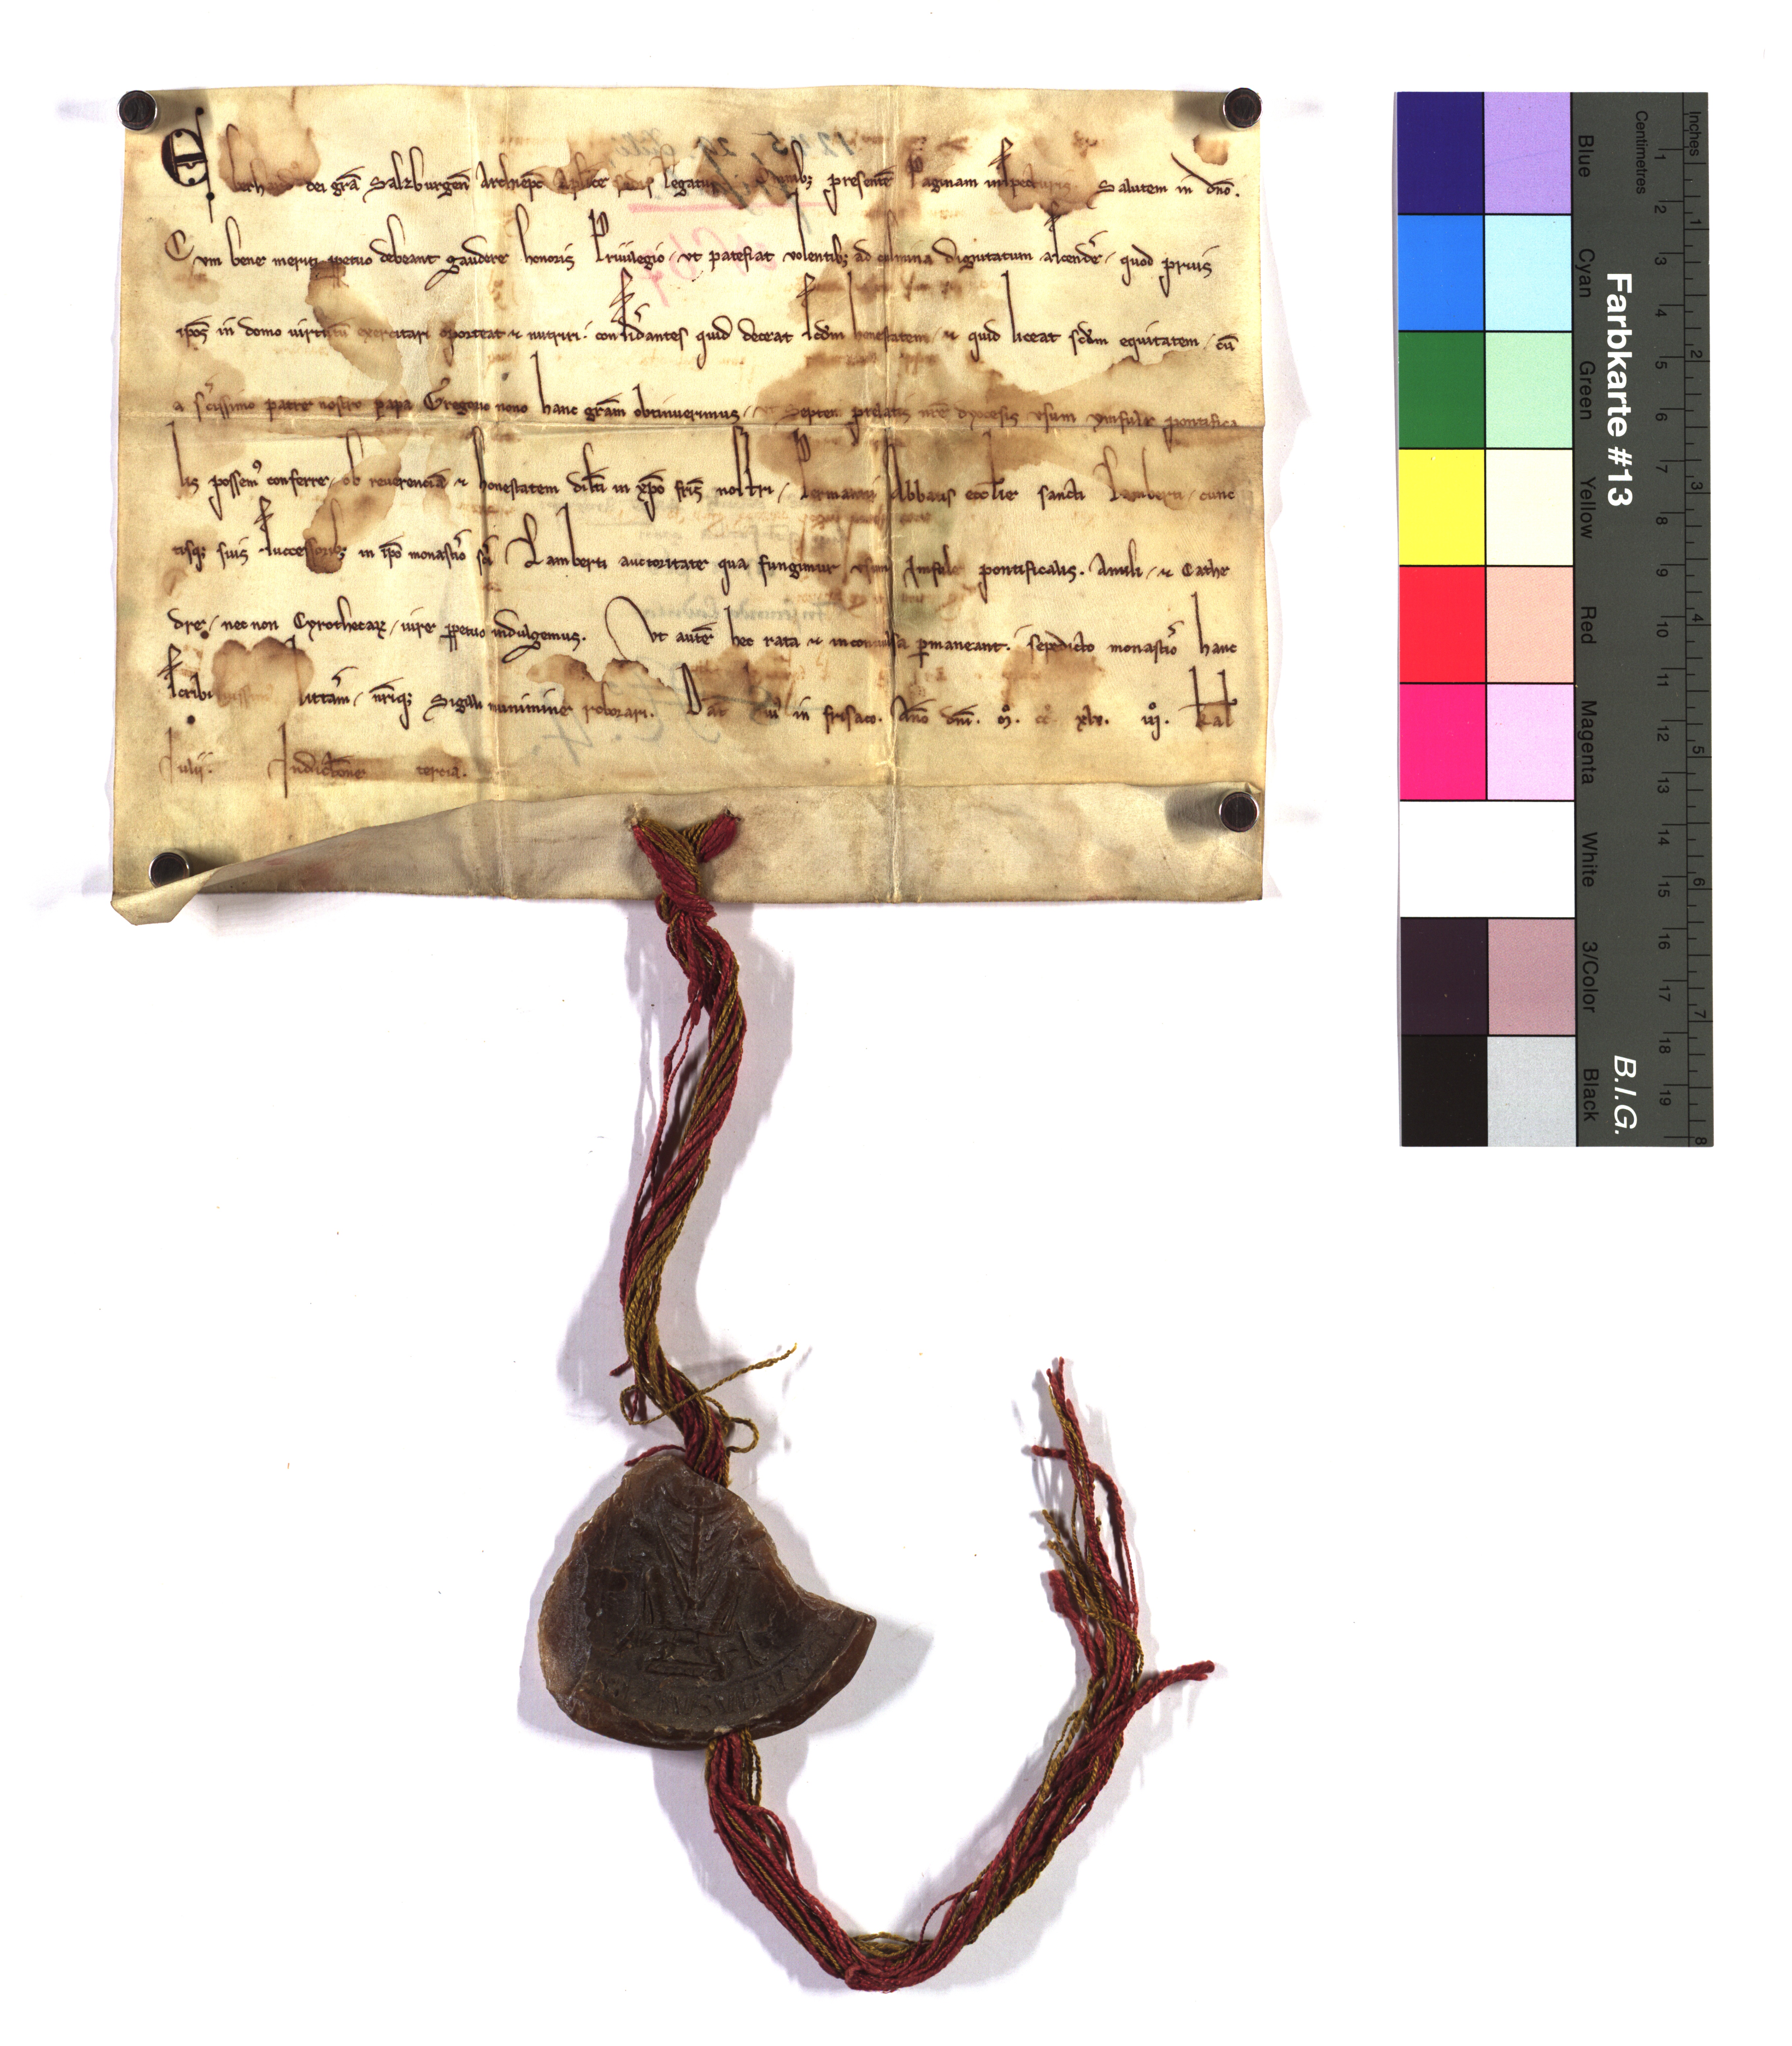 Eberhardꝰ dei grã Salzburgeñ Archiep̃c Aplice sedis legatus Omnibꝫ presentẽ Paginam inspecturis Salutem in dño.
Cum bene meriti ꝑpetuo debeant gaudere honoris Priuilegio / vt patefiat volentibꝫ ad culmina dignitatum ascendẽ / quod prius
ip̃os in domo virtutũ exercitari oporteat ⁊ nutriri. consid̾antes quid deceat scdm honestatem / ⁊ quid liceat scdm equitatem / cũ
a sc̃issimo patre nostro papa Gregorio nono hanc gr̃am obtinuerimus / vt Septem prelatis nr̃e dyocesis vsum ynfule pontifica
lis possemꝰ conferre / ob reuerenciã ⁊ honestatem dil̃ti in xp̃o fr̃is nostri / Permanni Abbatis eccl̃ie sancti Lamberti / cunc
tisqꝫ suis successoribꝫ in ip̃o monast̾io sc̃i Lamberti auctoritate qua fungimur vsum Imfule pontificalis. Anuli / ⁊ Cathe
dre / nec non Cyrothecaꝝ / iure ꝑpetuo indulgemus. Vt autẽ hec rata ⁊ inconuulsa ꝑmaneant. sepedicto monast̾io hanc
scribi iussimus litt̾am / nr̃iqꝫ Sigilli munimine roborari. Dat̃ in frisaco. Año dñi. m̊. cc̊. xlv. iij̊. kal
Iulii. Indictõne tercia.
Farbkarte #13
B.I.G.
Inches
Centimetres
1 2 3 4 5 6 7 8 9 10 11 12 13 14 15 16 17 18 19
1 2 3 4 5 6 7 8
Blue
Cyan
Green
Yellow
Red
Magenta
White
3/Color
Black